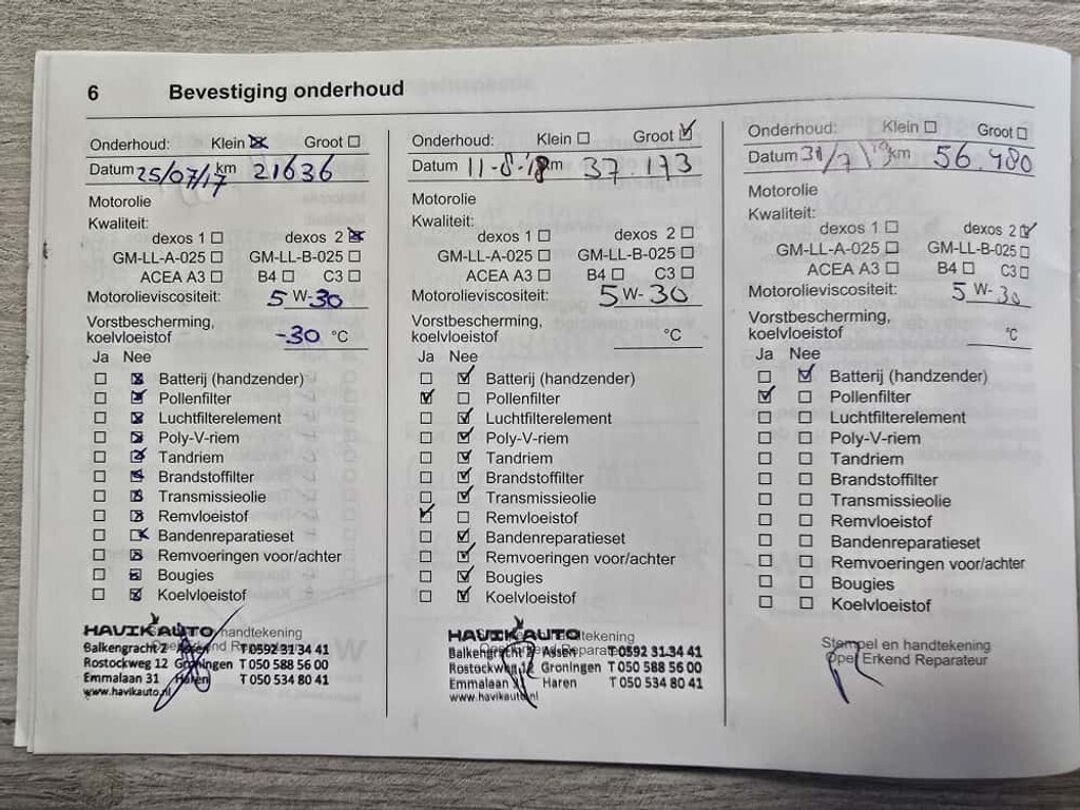 6 Bevestiging onderhoud
Onderhoud: Klein ☒ Groot ☐
Datum 25/07/17 km 21636
Motorolie
Kwaliteit:
dexos 1 ☐ dexos 2 ☒
GM-LL-A-025 ☐ GM-LL-B-025 ☐
ACEA A3 ☐ B4 ☐ C3 ☐
Motorolieviscositeit: 5 W-30
Vorstbescherming,
koelvloeistof -30 °C
Ja Nee
☐ ☒ Batterij (handzender)
☐ ☒ Pollenfilter
☐ ☒ Luchtfilterelement
☐ ☒ Poly-V-riem
☐ ☒ Tandriem
☐ ☒ Brandstoffilter
☐ ☒ Transmissieolie
☐ ☒ Remvloeistof
☐ ☒ Bandenreparatieset
☐ ☒ Remvoeringen voor/achter
☐ ☒ Bougies
☐ ☒ Koelvloeistof
HAVIK AUTO handtekening
Balkengracht 2 Assen T 0592 31 34 41
Rostockweg 12 Groningen T 050 588 56 00
Emmalaan 31 Haren T 050 534 80 41
www.havikauto.nl
Onderhoud: Klein ☐ Groot ☑
Datum 11-8-18 km 37.173
Motorolie
Kwaliteit:
dexos 1 ☐ dexos 2 ☐
GM-LL-A-025 ☐ GM-LL-B-025 ☐
ACEA A3 ☐ B4 ☐ C3 ☐
Motorolieviscositeit: 5 W-30
Vorstbescherming,
koelvloeistof °C
Ja Nee
☐ ☑ Batterij (handzender)
☑ ☐ Pollenfilter
☐ ☑ Luchtfilterelement
☐ ☑ Poly-V-riem
☐ ☑ Tandriem
☐ ☑ Brandstoffilter
☐ ☑ Transmissieolie
☑ ☐ Remvloeistof
☐ ☑ Bandenreparatieset
☐ ☑ Remvoeringen voor/achter
☐ ☑ Bougies
☐ ☑ Koelvloeistof
HAVIK AUTO handtekening
Balkengracht 2 Assen T 0592 31 34 41
Rostockweg 12 Groningen T 050 588 56 00
Emmalaan 31 Haren T 050 534 80 41
www.havikauto.nl
Onderhoud: Klein ☐ Groot ☐
Datum 31/7/19 km 56.480
Motorolie
Kwaliteit:
dexos 1 ☐ dexos 2 ☑
GM-LL-A-025 ☐ GM-LL-B-025 ☐
ACEA A3 ☐ B4 ☐ C3 ☐
Motorolieviscositeit: 5 W-30
Vorstbescherming,
koelvloeistof °C
Ja Nee
☐ ☑ Batterij (handzender)
☑ ☐ Pollenfilter
☐ ☐ Luchtfilterelement
☐ ☐ Poly-V-riem
☐ ☐ Tandriem
☐ ☐ Brandstoffilter
☐ ☐ Transmissieolie
☐ ☐ Remvloeistof
☐ ☐ Bandenreparatieset
☐ ☐ Remvoeringen voor/achter
☐ ☐ Bougies
☐ ☐ Koelvloeistof
Stempel en handtekening
Opel Erkend Reparateur